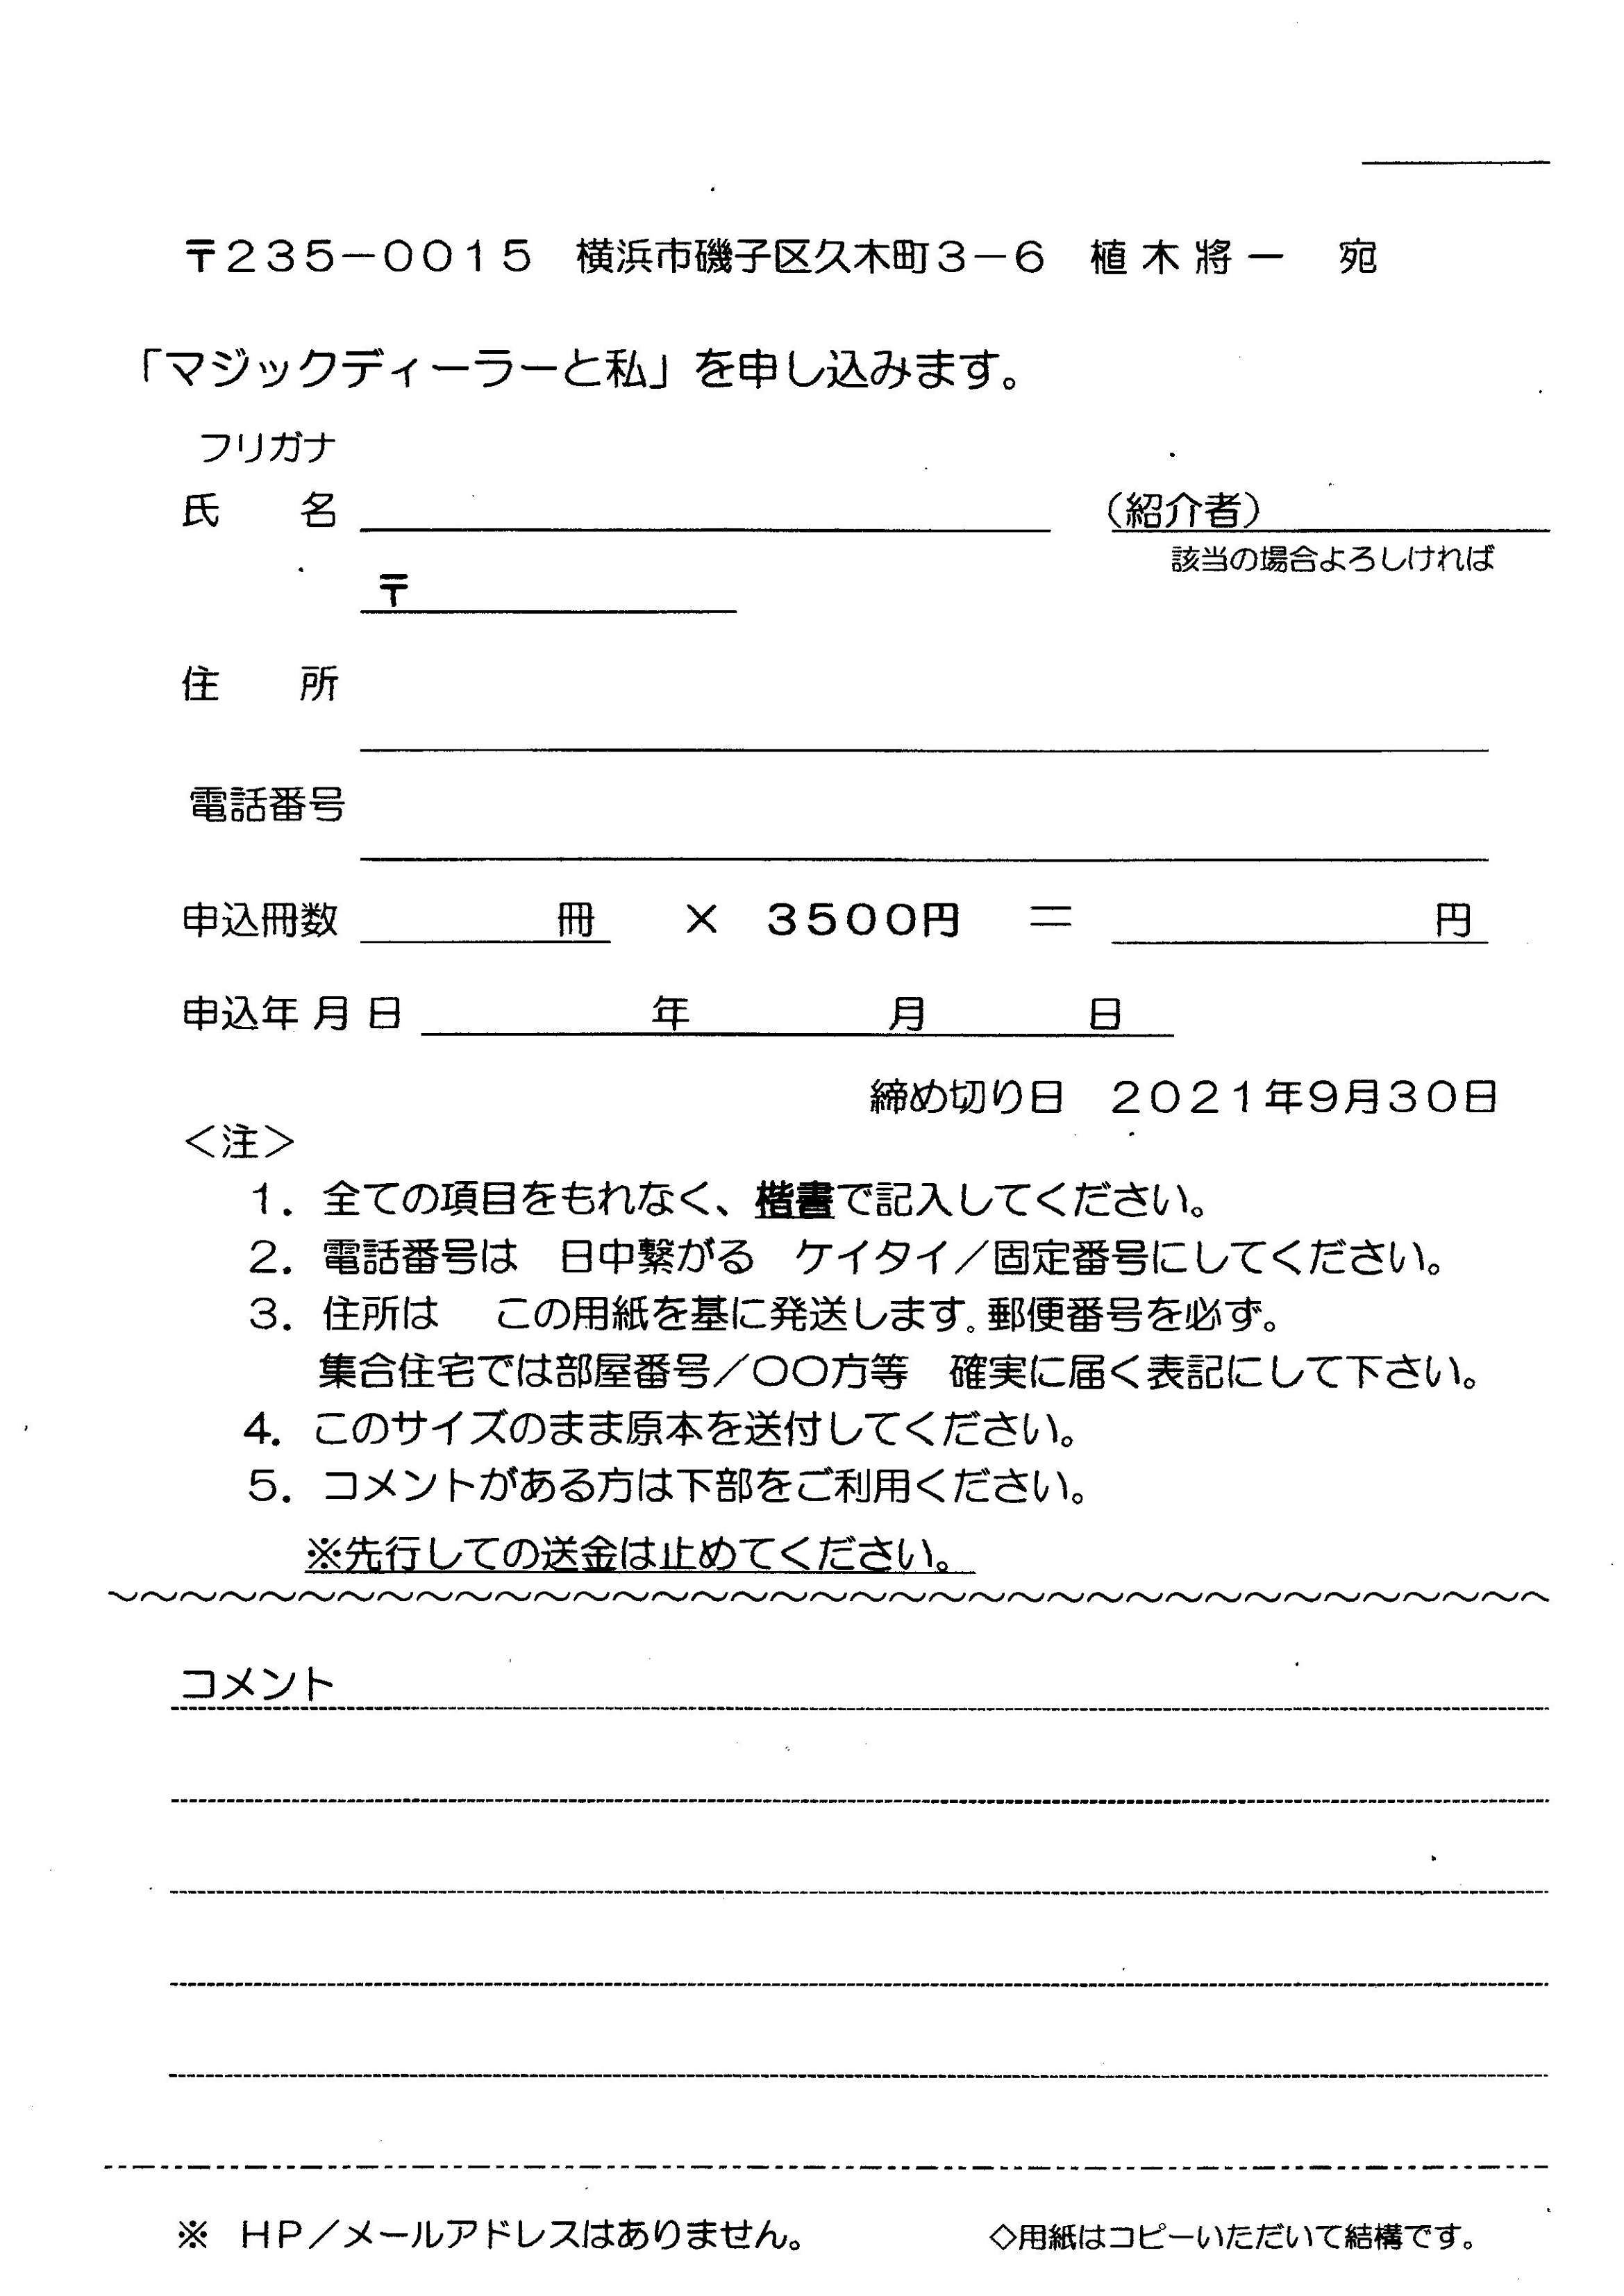 〒235－0015　横浜市磯子区久木町3－6　植木將一　宛
「マジックディーラーと私」を申し込みます。
フリガナ
氏　　名　　　　　　　　　　（紹介者）
該当の場合よろしければ
〒
住　　所
電話番号
申込冊数　　　　　冊　　×　3500円　＝　　　　　　　　円
申込年月日　　　　　　年　　　　　月　　　　日
締め切り日　2021年9月30日
＜注＞
1．全ての項目をもれなく、楷書で記入してください。
2．電話番号は　日中繋がる　ケイタイ／固定番号にしてください。
3．住所は　この用紙を基に発送します。郵便番号を必ず。
集合住宅では部屋番号／〇〇方等　確実に届く表記にして下さい。
4．このサイズのまま原本を送付してください。
5．コメントがある方は下部をご利用ください。
※先行しての送金は止めてください。
～～～～～～～～～～～～～～～～～～～～～～～～～～～～～～～～～～～～
コメント
※　HP／メールアドレスはありません。　　　　◇用紙はコピーいただいて結構です。